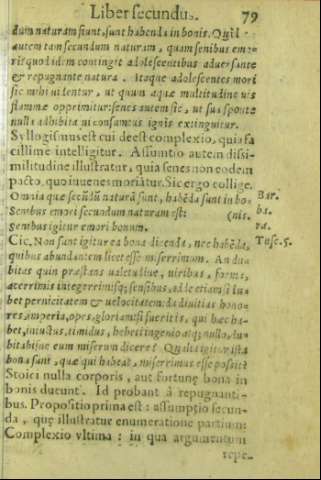 Liber secundus. 79
dum naturam fiunt, sunt habenda in bonis. Quid
autem tam secundum naturam, quam senibus emo-
ri: quod idem contingit adolescentibus aduersante
& repugnante natura. Itaque adolescentes mori
sic mihi uidentur, ut quum aquæ multitudine uis
flammæ opprimitur: senes autem sic, ut sua sponte
nulla adhibita ui consumtus ignis extinguitur.
Syllogismus est cui deest complexio, quia fa
cillime intelligitur. Assumtio autem dissi-
militudine illustratur, quia senes non eodem
pacto, quo iuuenes moriatur. Sic ergo collige.
Omnia quæ secūdū naturā sunt, habēda sunt in bo- Bar.
Senibus emori secundum naturam est: (nis. ba.
Senibus igitur emori bonum. ra.
Cic. Non sunt igitur ea bona dicenda, nec habēda, Tusc. 5.
quibus abundantem licet esse miserrimum. An du-
bitas quin præstans ualetudine, uiribus, forma,
acerrimis integerrimisq; sensibus, adde etiam si lu-
bet pernicitatem & uelocitatem: da diuitias hono-
res, imperia, opes, gloriam: si fuerit is, qui hæc ha-
bet, iniustus, timidus, hebeti ingenio atq; nullo, du-
bitabisne eum miserum dicere? Qualia igitur ista
bona sunt, quæ qui habeat, miserrimus esse possit?
Stoici nulla corporis, aut fortunę bona in
bonis ducunt. Id probant à repugnanti-
bus. Propositio prima est: assumptio secun-
da, quę illustratur enumeratione partium:
Complexio vltima: in qua argumentum
repe-